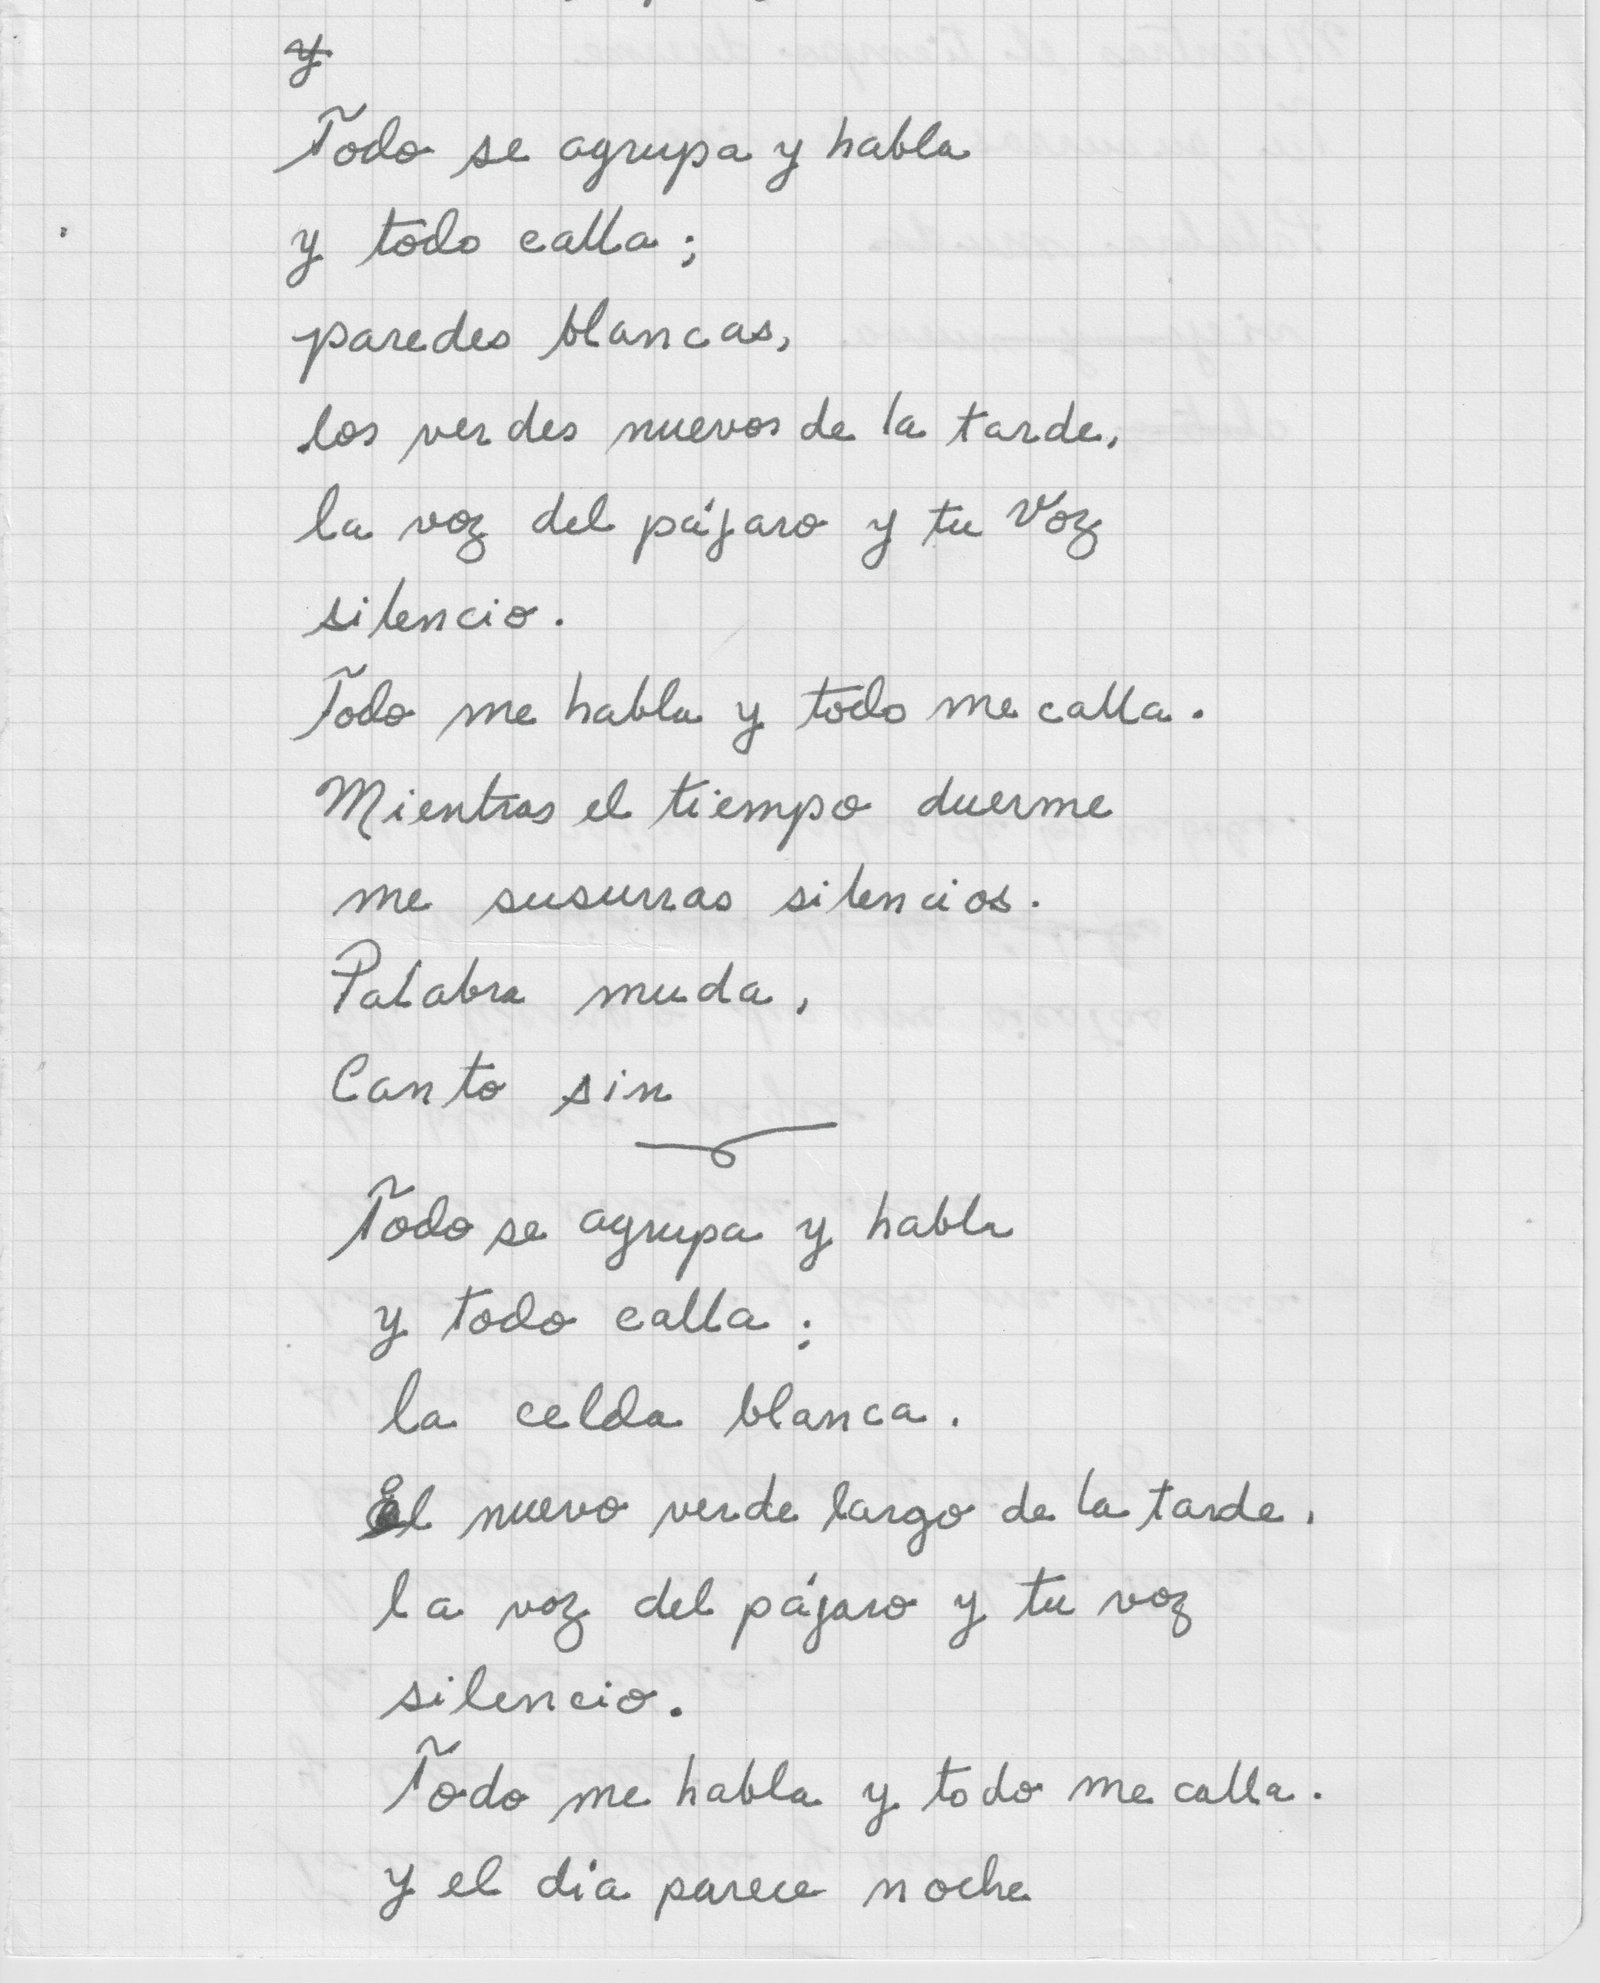 y
Todo se agrupa y habla
y todo calla;
paredes blancas,
los verdes nuevos de la tarde,
la voz del pájaro y tu voz
silencio.
Todo me habla y todo me calla.
Mientras el tiempo duerme
me susurras silencios.
Palabra muda,
Canto sin
Todo se agrupa y habla
y todo calla;
la celda blanca.
El nuevo verde largo de la tarde,
la voz del pájaro y tu voz
silencio.
Todo me habla y todo me calla.
y el día parece noche